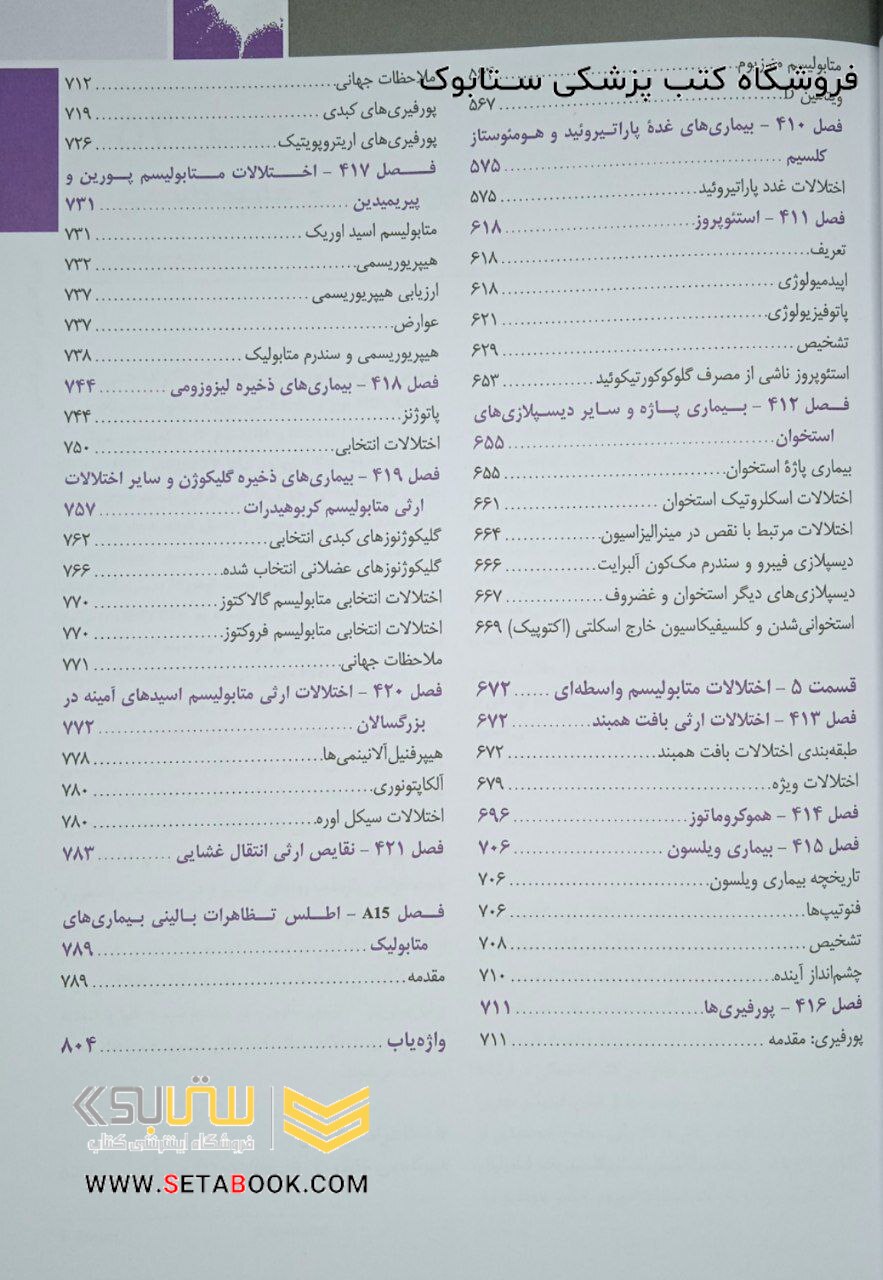 فروشگاه کتب پزشکی ستابوک
متابولیسم
ویتامین D ۵۶۷
فصل ۴۱۰ - بیماری‌های غدهٔ پاراتیروئید و هومئوستاز
کلسیم ۵۷۵
اختلالات غدد پاراتیروئید ۵۷۵
فصل ۴۱۱ - استئوپروز ۶۱۸
تعریف ۶۱۸
اپیدمیولوژی ۶۱۸
پاتوفیزیولوژی ۶۲۱
تشخیص ۶۲۹
استئوپروز ناشی از مصرف گلوکوکورتیکوئید ۶۵۳
فصل ۴۱۲ - بیماری پاژه و سایر دیسپلازی‌های
استخوان ۶۵۵
بیماری پاژهٔ استخوان ۶۵۵
اختلالات اسکلروتیک استخوان ۶۶۱
اختلالات مرتبط با نقص در مینرالیزاسیون ۶۶۴
دیسپلازی فیبرو و سندرم مک‌کون آلبرایت ۶۶۶
دیسپلازی‌های دیگر استخوان و غضروف ۶۶۷
استخوانی‌شدن و کلسیفیکاسیون خارج اسکلتی (اکتوپیک) ۶۶۹
قسمت ۵ - اختلالات متابولیسم واسطه‌ای ۶۷۲
فصل ۴۱۳ - اختلالات ارثی بافت همبند ۶۷۲
طبقه‌بندی اختلالات بافت همبند ۶۷۲
اختلالات ویژه ۶۷۹
فصل ۴۱۴ - هموکروماتوز ۶۹۶
فصل ۴۱۵ - بیماری ویلسون ۷۰۶
تاریخچه بیماری ویلسون ۷۰۶
فنوتیپ‌ها ۷۰۶
تشخیص ۷۰۸
چشم‌انداز آینده ۷۱۰
فصل ۴۱۶ - پورفیری‌ها ۷۱۱
پورفیری: مقدمه ۷۱۱
ملاحظات جهانی ۷۱۲
پورفیری‌های کبدی ۷۱۹
پورفیری‌های اریتروپویتیک ۷۲۶
فصل ۴۱۷ - اختلالات متابولیسم پورین و
پیریمیدین ۷۳۱
متابولیسم اسید اوریک ۷۳۱
هیپریوریسمی ۷۳۲
ارزیابی هیپریوریسمی ۷۳۷
عوارض ۷۳۷
هیپریوریسمی و سندرم متابولیک ۷۳۸
فصل ۴۱۸ - بیماری‌های ذخیره لیزوزومی ۷۴۴
پاتوژنز ۷۴۴
اختلالات انتخابی ۷۵۰
فصل ۴۱۹ - بیماری‌های ذخیره گلیکوژن و سایر اختلالات
ارثی متابولیسم کربوهیدرات ۷۵۷
گلیکوژنوزهای کبدی انتخابی ۷۶۲
گلیکوژنوزهای عضلانی انتخاب شده ۷۶۶
اختلالات انتخابی متابولیسم گالاکتوز ۷۷۰
اختلالات انتخابی متابولیسم فروکتوز ۷۷۰
ملاحظات جهانی ۷۷۱
فصل ۴۲۰ - اختلالات ارثی متابولیسم اسیدهای آمینه در
بزرگسالان ۷۷۲
هیپرفنیل‌آلانینمی‌ها ۷۷۸
آلکاپتونوری ۷۸۰
اختلالات سیکل اوره ۷۸۰
فصل ۴۲۱ - نقایص ارثی انتقال غشایی ۷۸۳
فصل A15 - اطلس تظاهرات بالینی بیماری‌های
متابولیک ۷۸۹
مقدمه ۷۸۹
واژه‌یاب ۸۰۴
ستابوک
فروشگاه اینترنتی کتاب
WWW.SETABOOK.COM